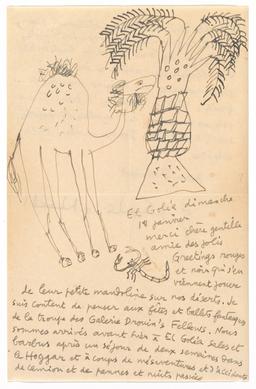 El Goléa dimanche
18 janvier
merci chère gentille
amie des jolis
Greetings rouges
et noir qui s'en
viennent jouer
de leur petite mandoline sur nos déserts. Je
suis content de penser aux fêtes et ballets
de la troupe des Galerie Drouin's Fellows. Nous
sommes arrivés avant hier à El Goléa sales et
barbus après un séjour de deux semaines dans
le Hoggar et à coups de mésaventures et d'accidents
de camion et de pannes et nuits passées